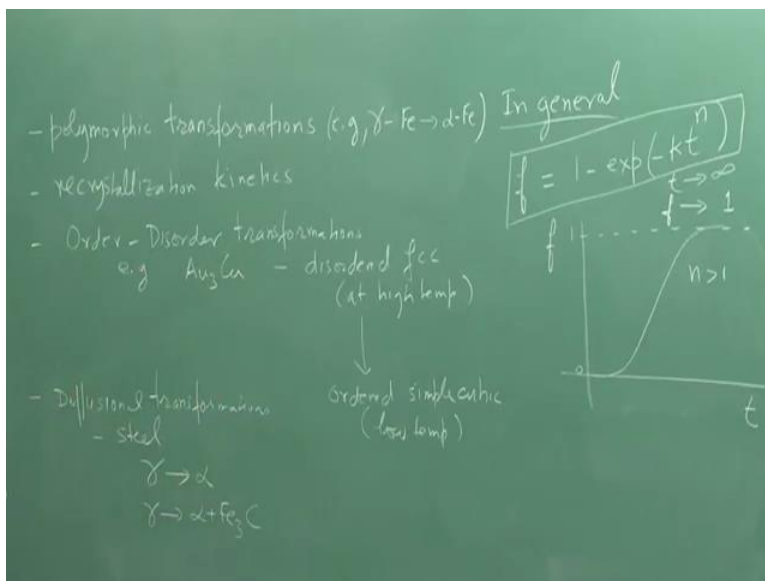 - polymorphic transformations (e.g, γ-Fe → α-Fe)
- recrystallization kinetics
- Order - Disorder transformations
e.g Au₃Cu - disordered fcc
(at high temp)
↓
ordered simple cubic
(low temp)
- Diffusional transformations
- steel
γ → α
γ → α + Fe₃C
In general
f = 1 - exp(-kt^n)
t → ∞
f → 1
f
1
n>1
0
t